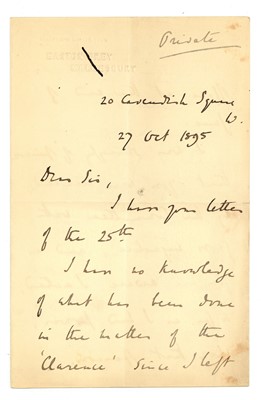 Private
20 Cavendish Square
W.
27 Oct 1895
Dear Sir,
I have your letter
of the 25th
I have no knowledge
of what has been done
in the matter of the
'Clarence' since I left